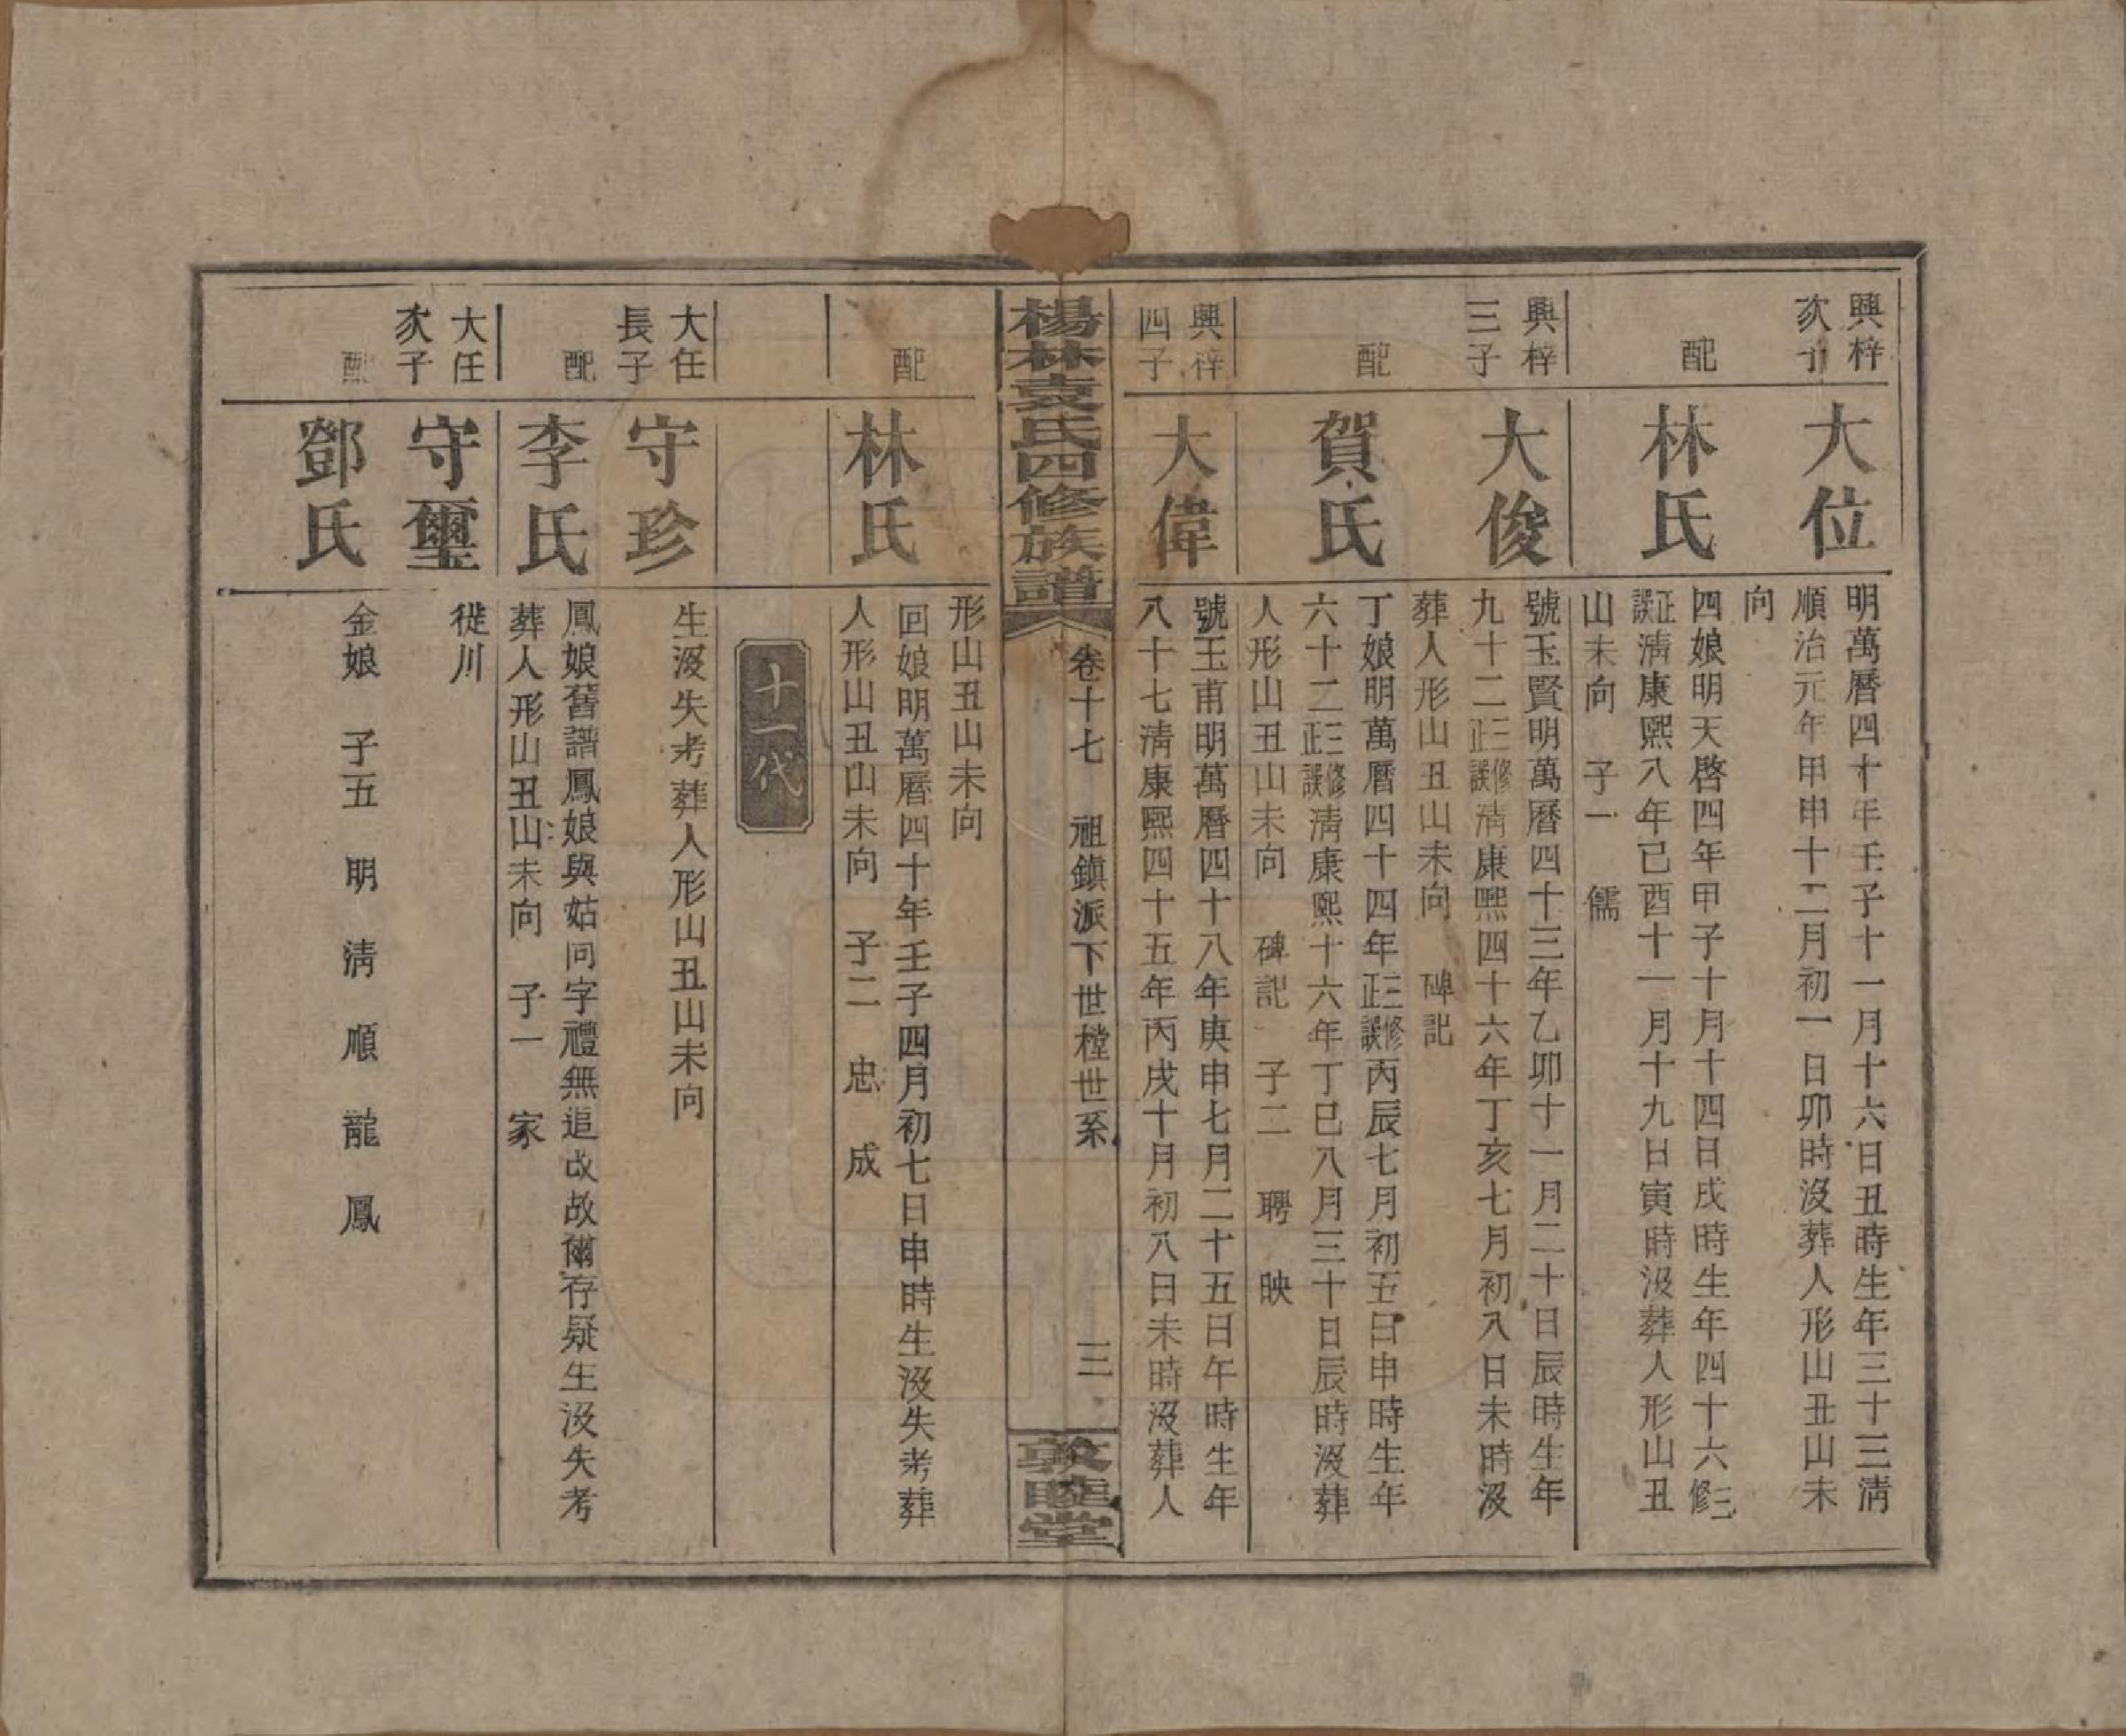 興梓
次子
大位
明萬曆四十年壬子十一月十六日丑時生年三十三清
順治元年甲申十二月初一日卯時沒葬人形山丑山未
向
配
林氏
四娘明天啓四年甲子十月十四日戌時生年四十六三修
正誤清康熙八年己酉十一月十九日寅時沒葬人形山丑
山未向 子一 儒
興梓
三子
大俊
號玉賢明萬曆四十三年乙卯十一月二十日辰時生年
九十二三修正誤清康熙四十六年丁亥七月初八日未時沒
葬人形山丑山未向 碑記
配
賀氏
丁娘明萬曆四十四年三修正誤丙辰七月初五日申時生年
六十二三修正誤清康熙十六年丁巳八月三十日辰時沒葬
人形山丑山未向 碑記 子二 聘 映
興梓
四子
大偉
號玉甫明萬曆四十八年庚申七月二十五日午時生年
八十七清康熙四十五年丙戌十月初八日未時沒葬人
楊林袁氏四修族譜
卷十七 祖鎮派下世樘世系
三
敦睦堂
形山丑山未向
配
林氏
回娘明萬曆四十年壬子四月初七日申時生沒失考葬
人形山丑山未向 子二 忠 成
十一代
大任
長子
守珍
生沒失考葬人形山丑山未向
配
李氏
鳳娘舊譜鳳娘與姑同字禮無追改故爾存疑生沒失考
葬人形山丑山未向 子一 家
大任
次子
守璽
從川
配
鄧氏
金娘 子五 明 清 順 龍 鳳